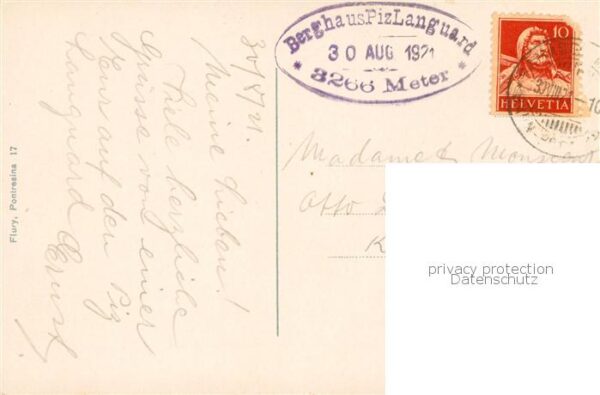 BerghausPizLanguard
30 AUG 1921
* 3266 Meter *
10
HELVETIA
30/8/21.
Meine Lieben!
Viele herzliche
Grüsse von einer
Tour auf den Piz
Languard Ernst
Flury, Pontresina 17
Madame et Monsieur
Otto
privacy protection
Datenschutz